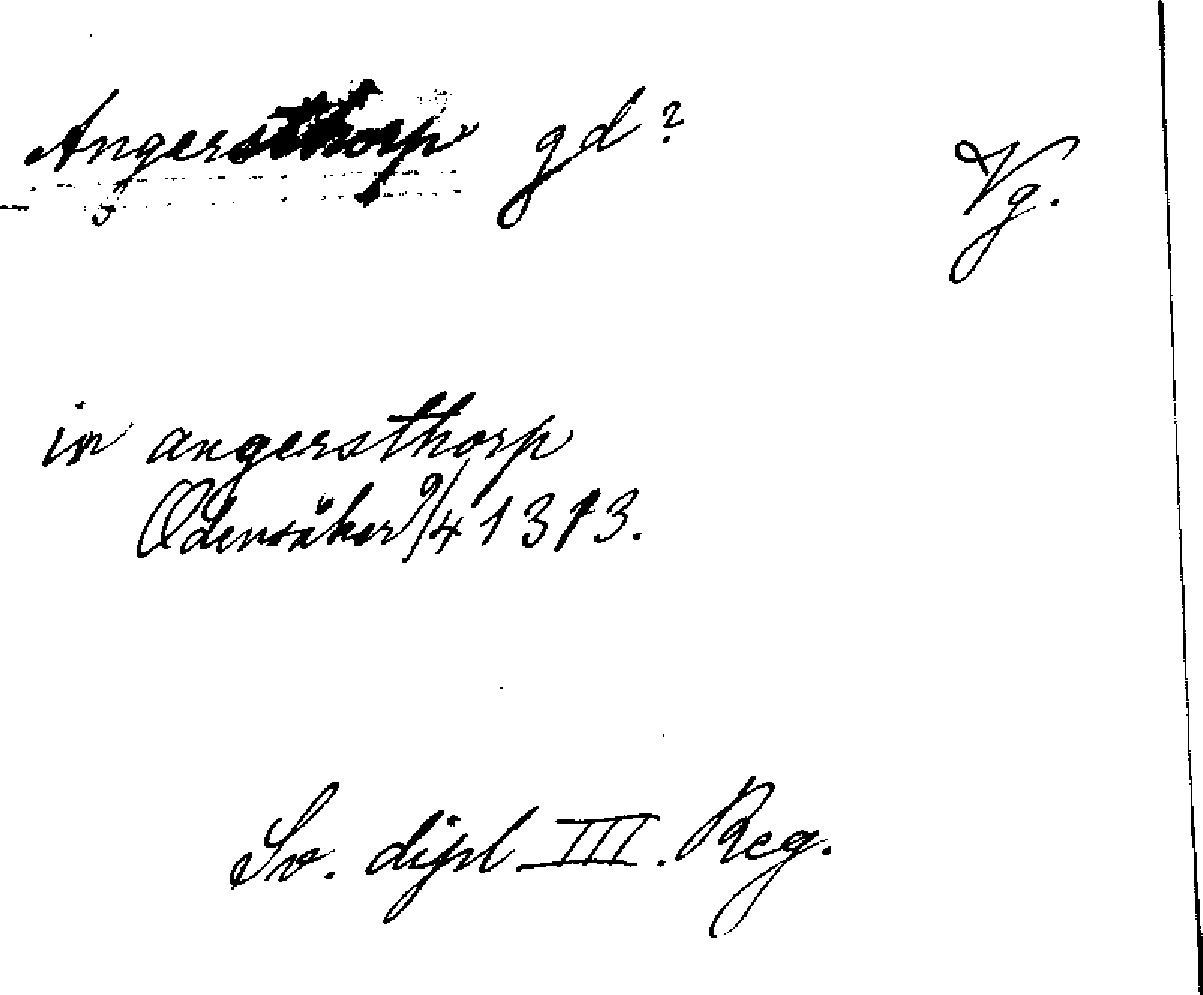 Angersthorp gd?
Vg.
in angersthorp
Odensåker 9/4 1313.
Sv. dipl. III. Reg.